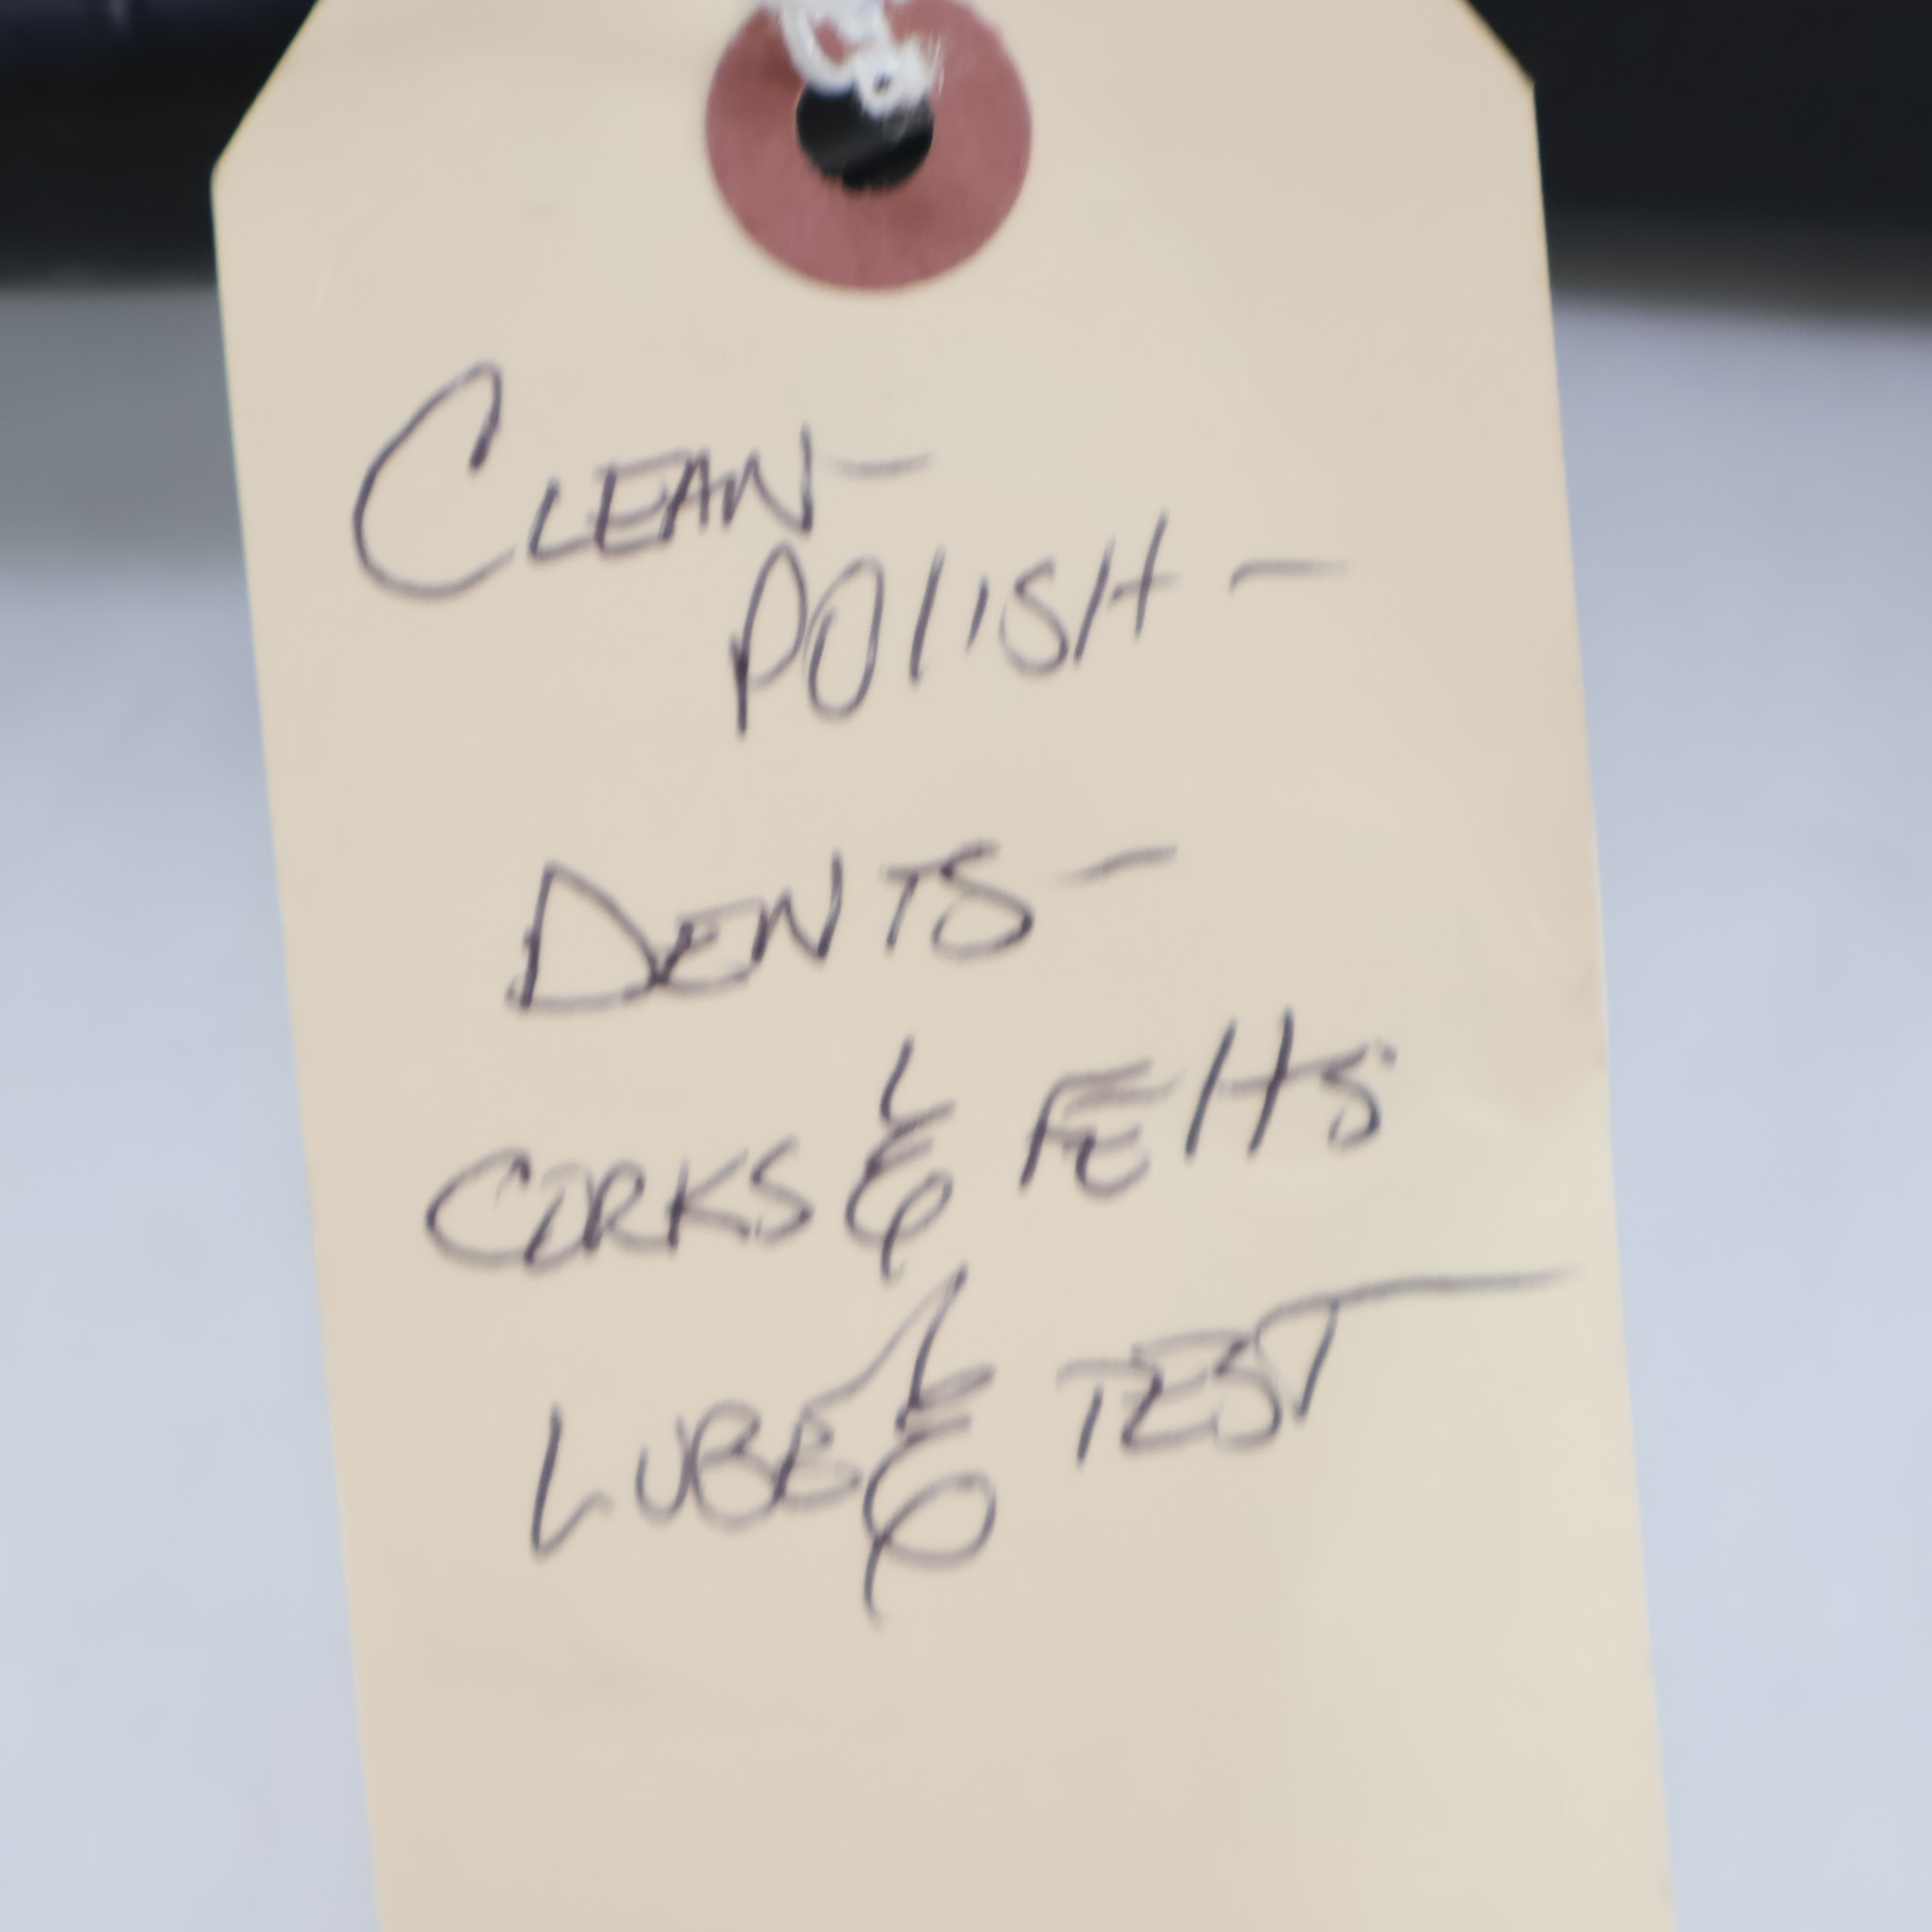 CLEAN -
POLISH -
DENTS -
CORKS & FELTS
LUBE & TEST